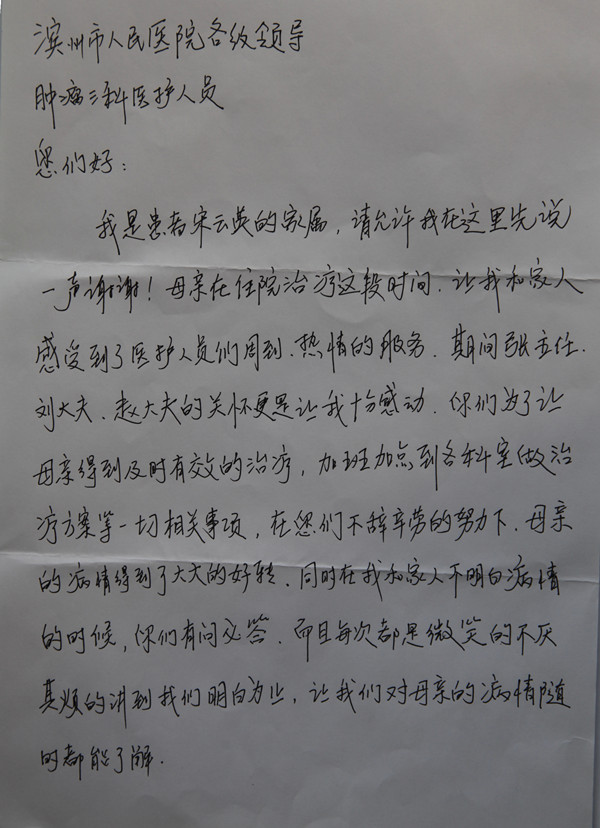 滨州市人民医院各级领导
肿瘤三科医护人员
您们好：
我是患者宋云英的家属，请允许我在这里先说
一声谢谢！母亲在住院治疗这段时间.让我和家人
感受到了医护人员们周到.热情的服务.期间张主任.
刘大夫.赵大夫的关怀更是让我十分感动.你们为了让
母亲得到及时有效的治疗，加班加点到各科室做治
疗方案等一切相关事项，在您们不辞辛劳的努力下.母亲
的病情得到了大大的好转.同时在我和家人不明白病情
的时候，你们有问必答.而且每次都是微笑的不厌
其烦的讲到我们明白为止，让我们对母亲的病情随
时都能了解.